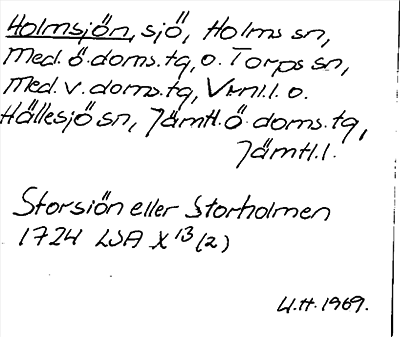 Holmsjön, sjö, Holms sn,
Med. ö. doms. tg, o. Torps sn,
Med. v. doms. tg, Vrnl. l. o.
Hällesjö sn, Jämtl. ö. doms. tg,
Jämtl. l.
Storsiön eller Storholmen
1724 LSA X 13 (2)
U.H. 1969.